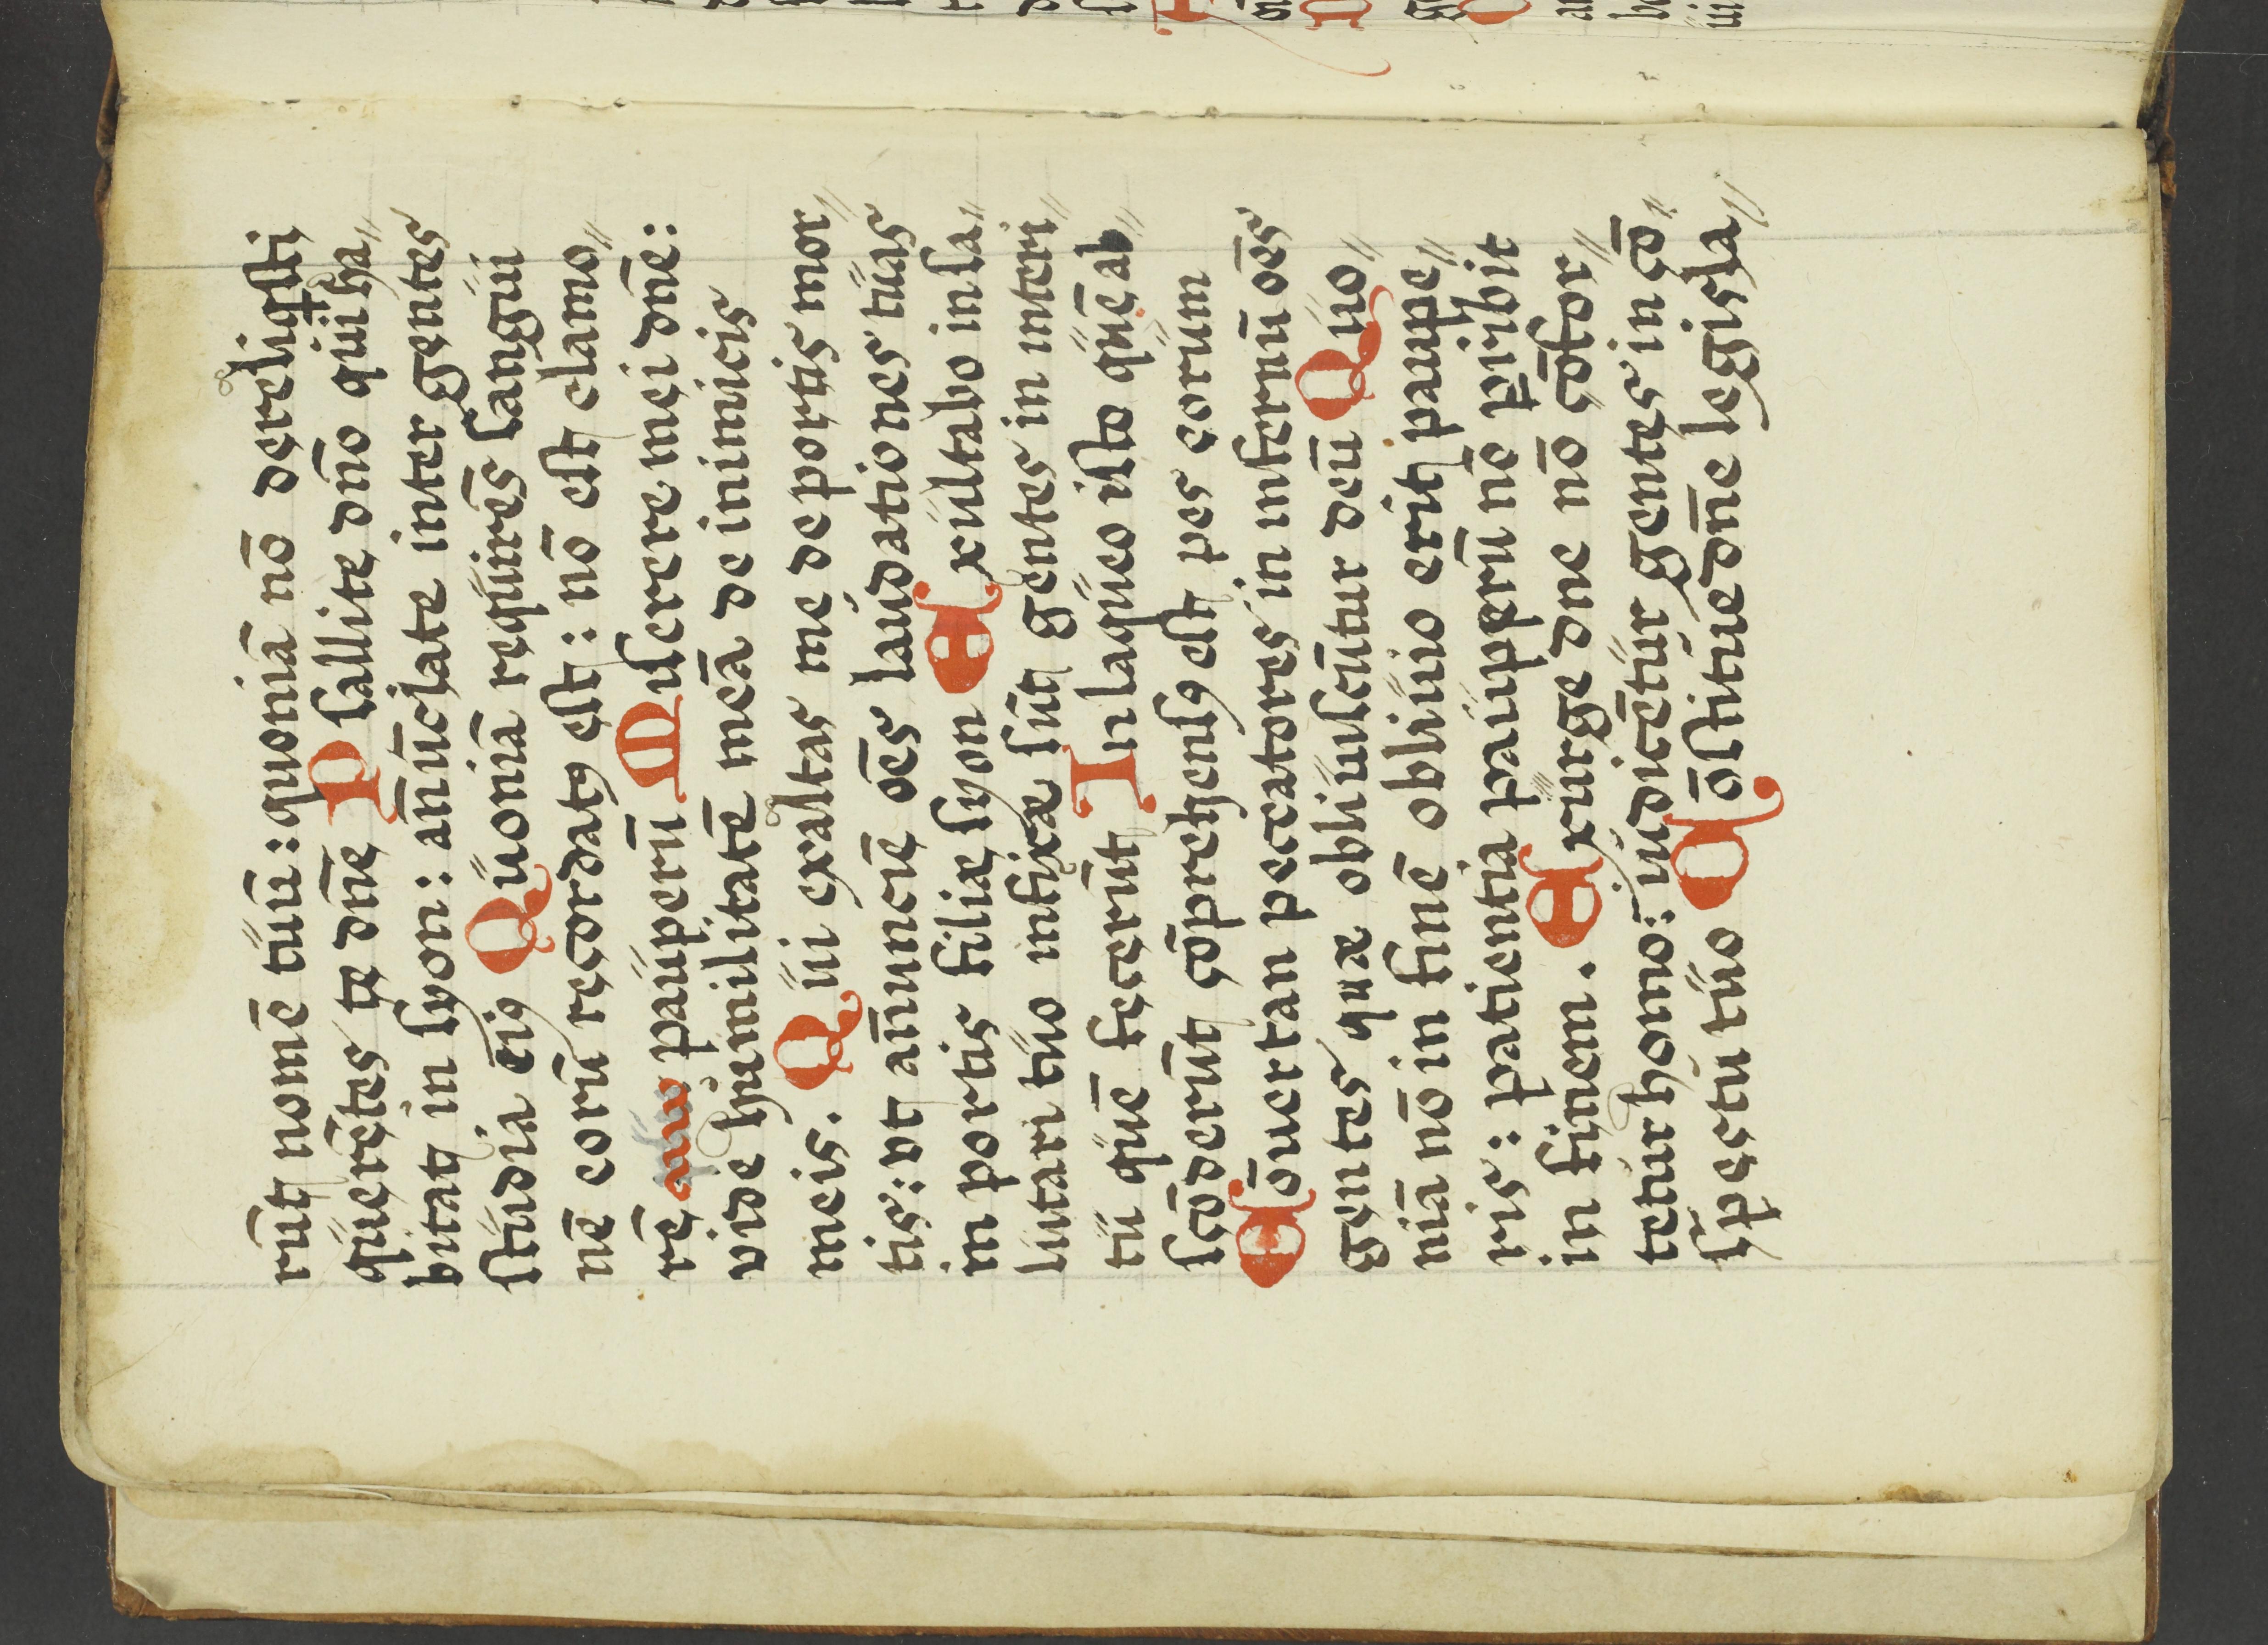 rūt nomē tuū: quoniā nō dereliqsti
querētes te dn̄e Psallite dn̄o qui ha⸗
bitat in syon: an̄ūciate inter gentes
studia eiꝰ Quoniā requirēs sangui
nē eorū recordatꝰ est: nō est clamo⸗
rē pauperū Miserere mei dn̄e:
vide humilitatē meā de inimicis
meis. Qui exaltas me de portis mor⸗
tis: vt an̄unciē oēs laudationes tuas
in portis filiæ syon Exultabo in sa⸗
lutari tuo infixæ sūt gentes in interi⸗
tū quē fecerūt In laqueo isto quē ab⸗
scōderūt cōprehensꝰ est pes eorum
Cōuertan peccatores in infernū oēs
gentes quæ obliuiscūtur deū Quo⸗
niā nō in finē obliuio erit paupe⸗
ris: patientia pauperū nē pirbit
in finem. Exurge dne nō cōfor⸗
tetur homo: iudicētur gentes in cō⸗
spectu tuo Cōstitue dn̄e legisla⸗